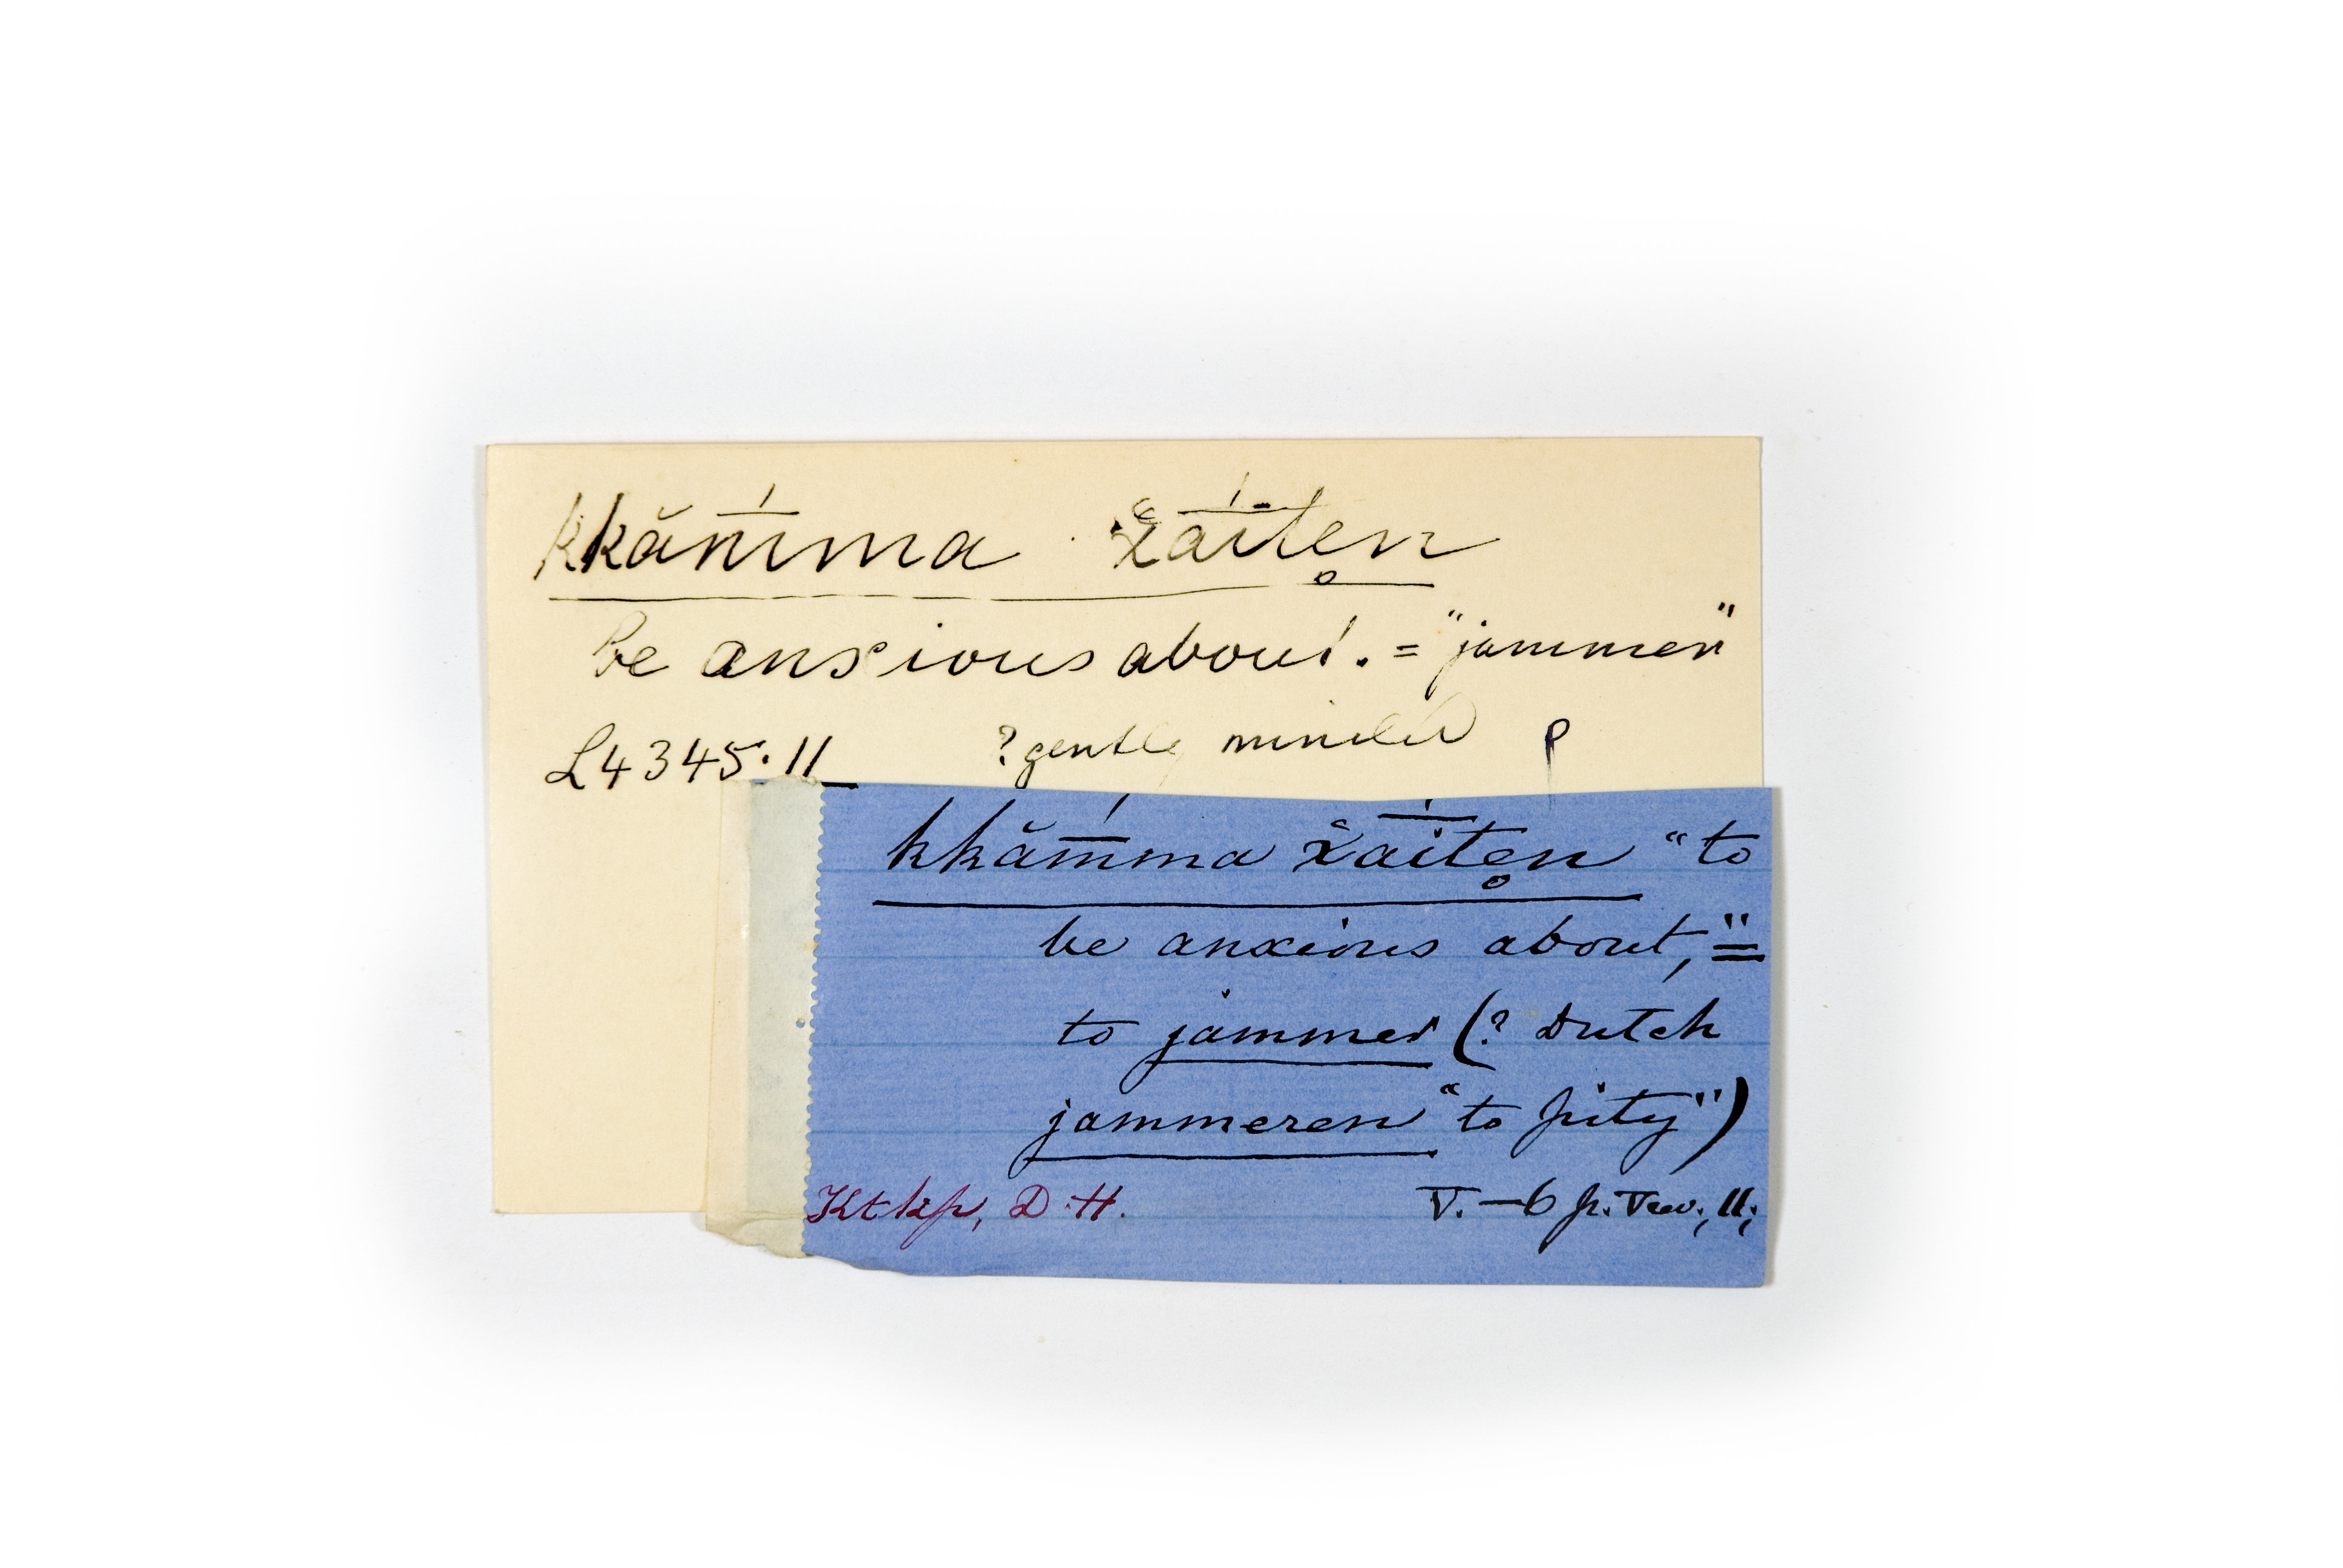 kkăm̅́ma χ̆a̅í̅ten̥
be anxious about. = "jammer"
L4345.11 ? gently minded P
kkăm̅́ma χ̆a̅í̅ten̥ "to
be anxious about," =
to jammer (? Dutch
jammeren "to pity")
Ktkp, D.H. V.—6 p. rev., 11;